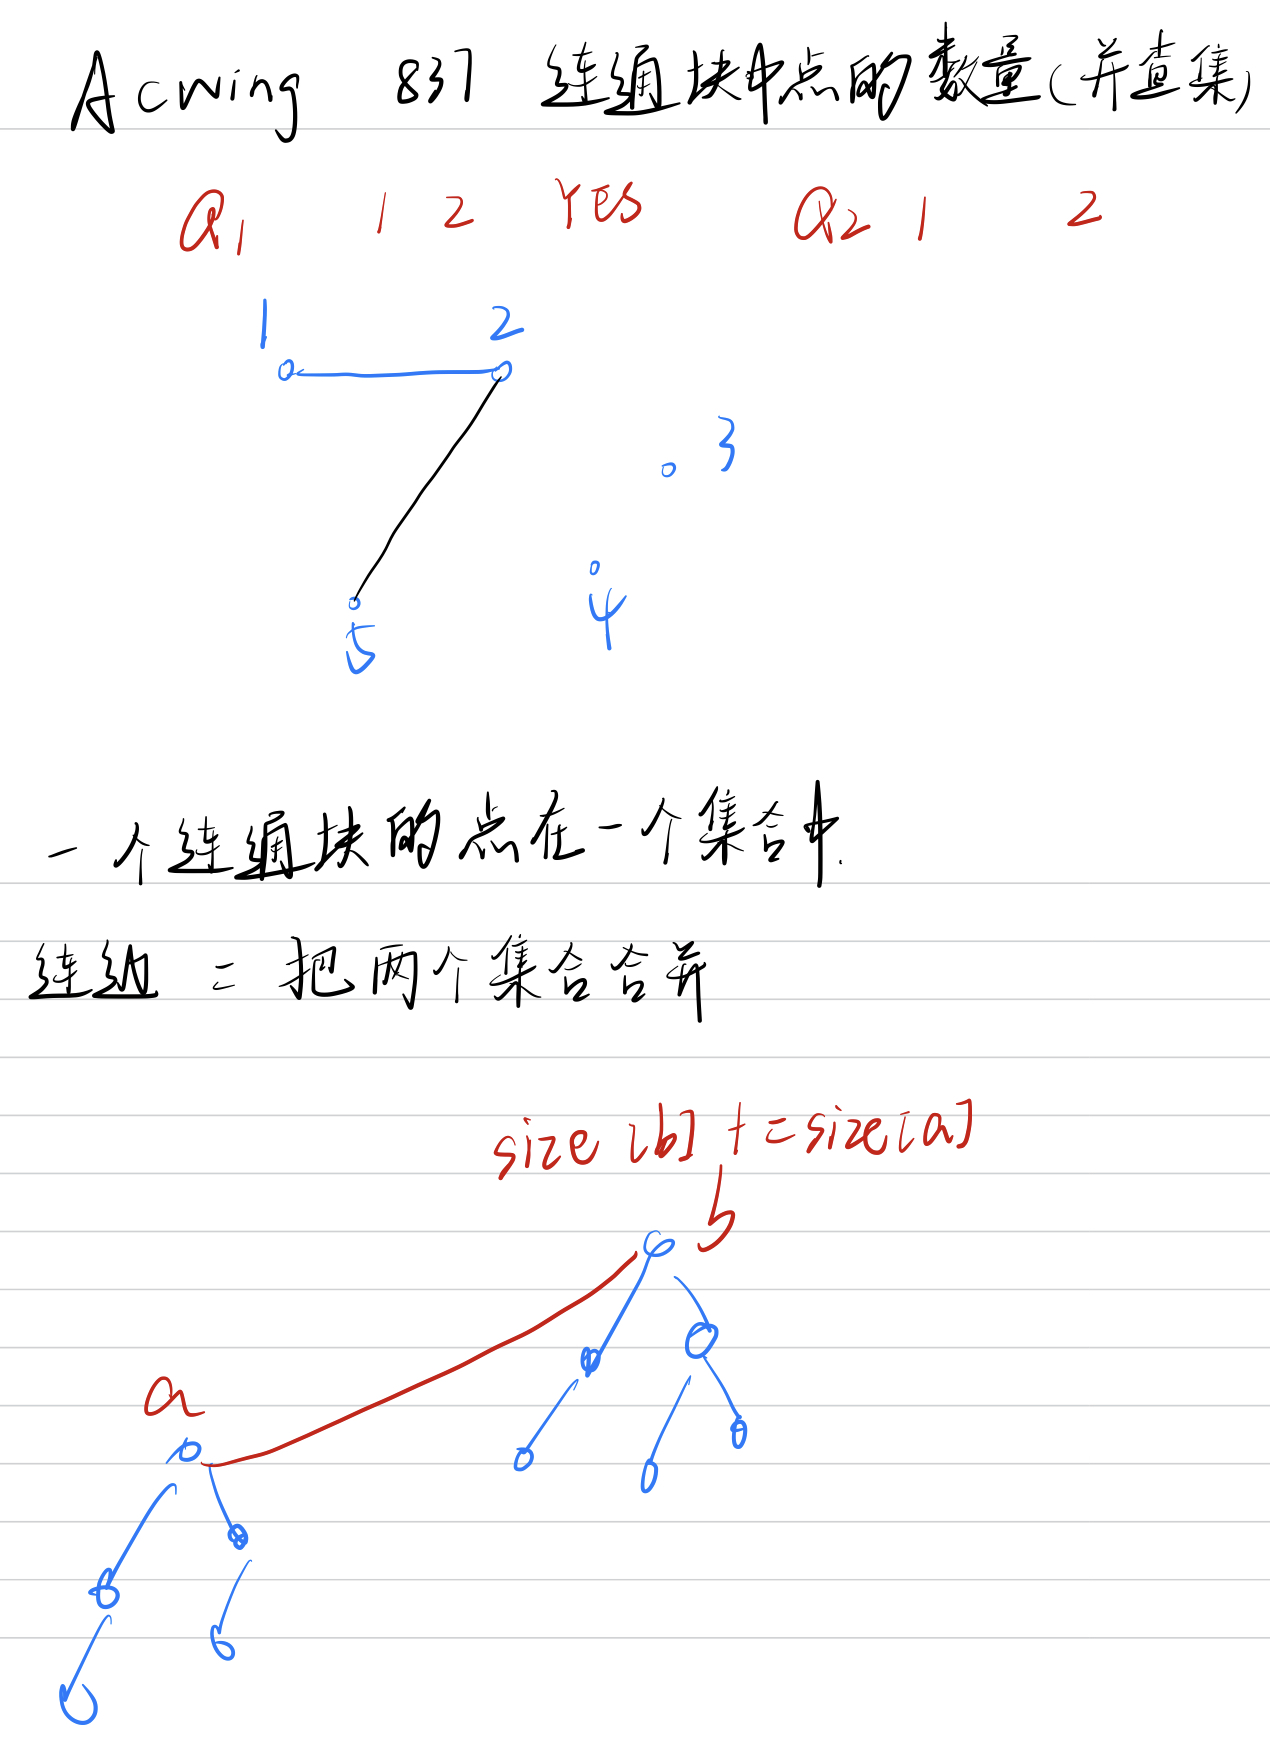 Acwing 837 连通块中点的数量(并查集)
Q1 1 2 YES Q2 1 2
1 2
3
4
5
一个连通块的点在一个集合中.
连边 = 把两个集合合并
size[b] += size[a]
b
a